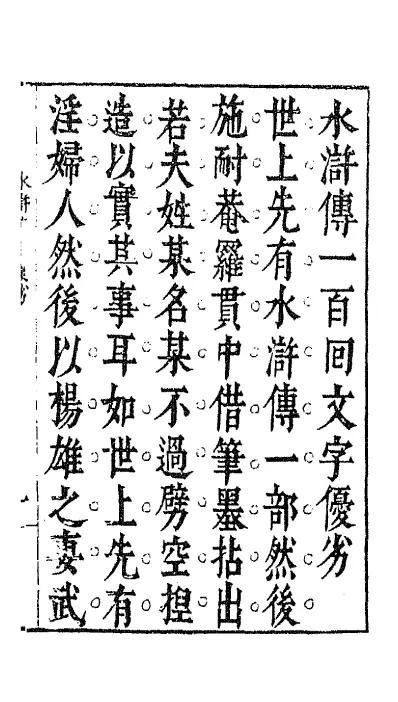 水滸傳一百回文字優劣
世上先有水滸傳一部然後
施耐菴羅貫中借筆墨拈出
若夫姓某名某不過劈空揑
造以實其事耳如世上先有
淫婦人然後以楊雄之妻武